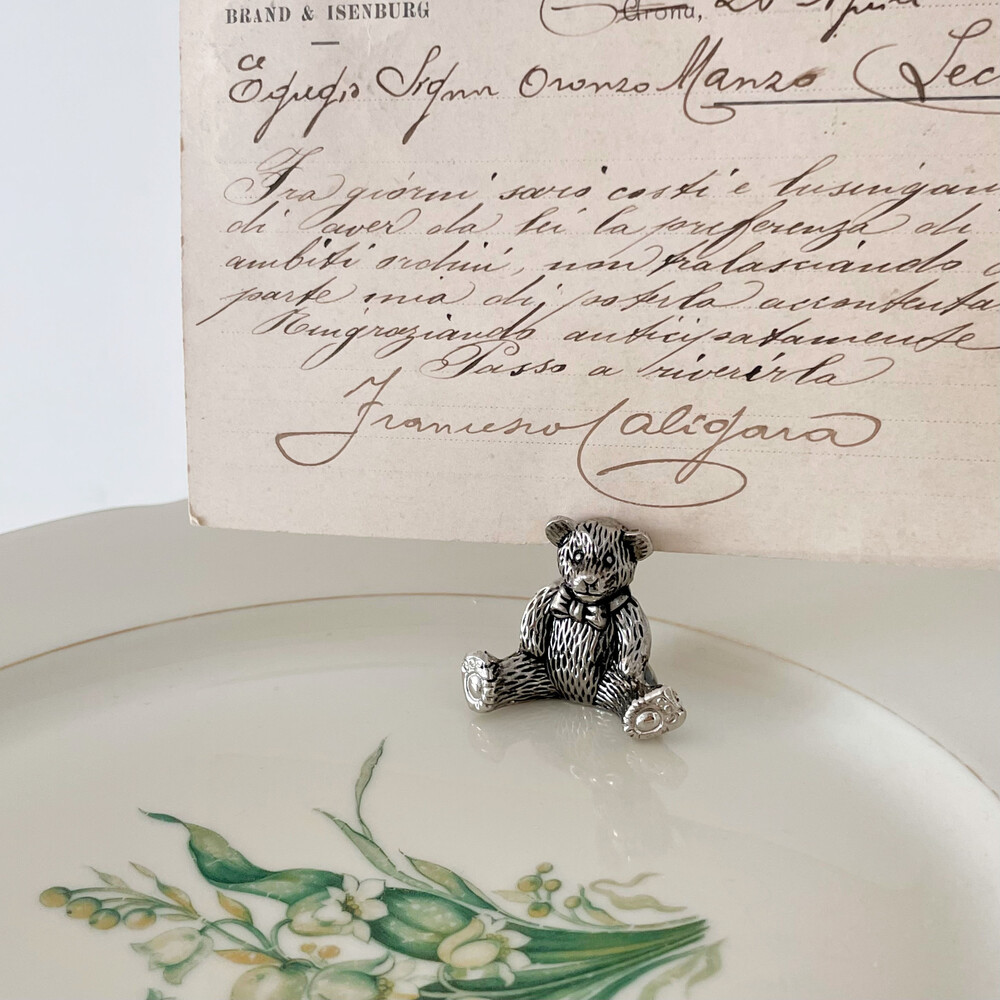 BRAND & ISENBURG
Girona, 20 Aprile
Egregio Signor Oronzo Manzo (Lec
Fra giorni sarò costì e lusingan
di aver da lei la preferenza di
ambiti ordini, non tralasciando d
parte mia di poterla accontenta
Ringraziando anticipatamente
Passo a riverirla
Francesco Caligara